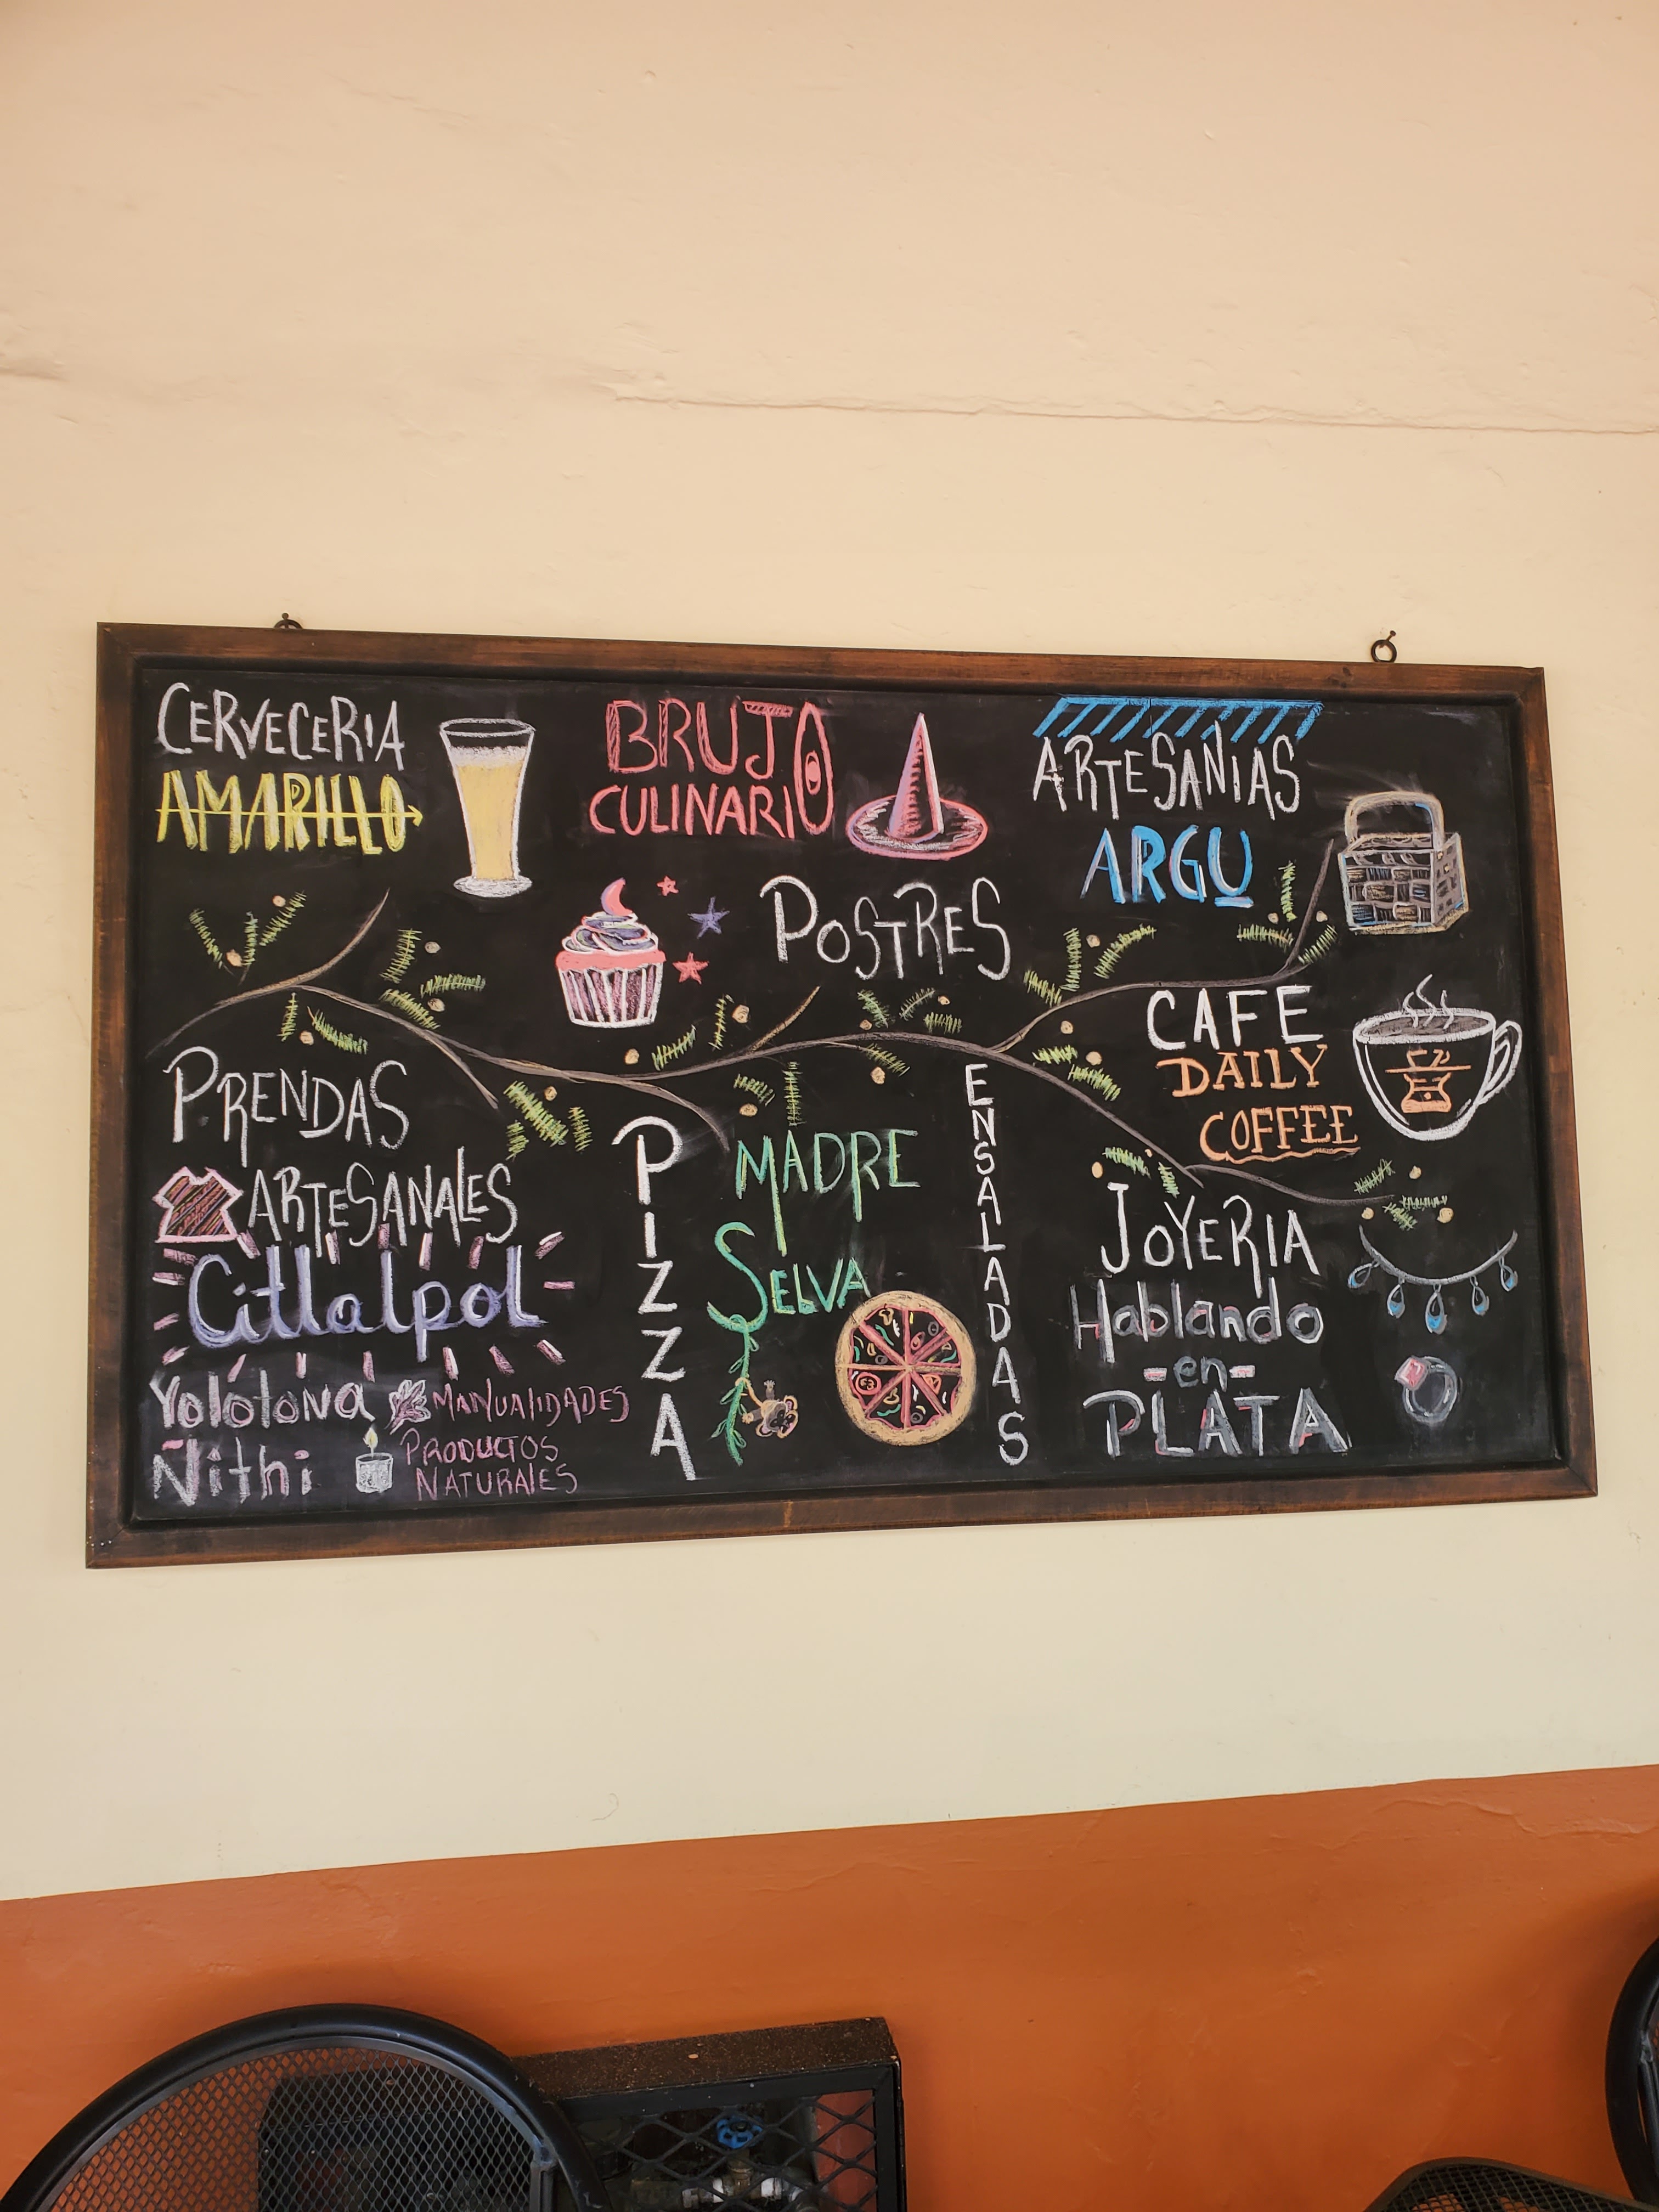 CERVECERIA
AMARILLO
BRUJO
CULINARIO
POSTRES
ARTESANIAS
ARGU
CAFE
DAILY
COFFEE
PRENDAS
ARTESANALES
Citlalpol
Yolotona MANUALIDADES
Ñithi PRODUCTOS
NATURALES
PIZZA
MADRE
SELVA
ENSALADAS
JOYERIA
Hablando
-en-
PLATA